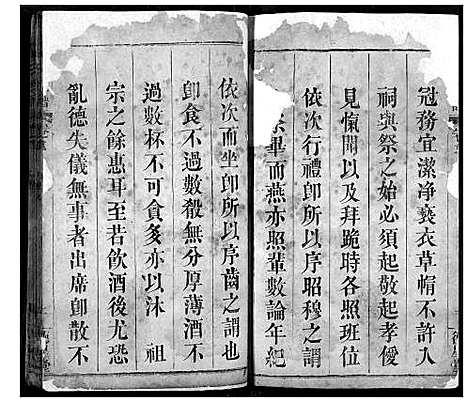 冠務宜潔净褻衣草帽不許入
祠與祭之始必須起敬起孝僾
見愾聞以及拜跪時各照班位
依次行禮卽所以序昭穆之謂
祭畢而燕亦照輩數論年紀
依次而坐卽所以序齒之謂也
卽食不過數殽無分厚薄酒不
過數杯不可貪多亦以沐　祖
宗之餘惠耳至若飲酒後尤恐
亂德失儀無事者出席卽散不